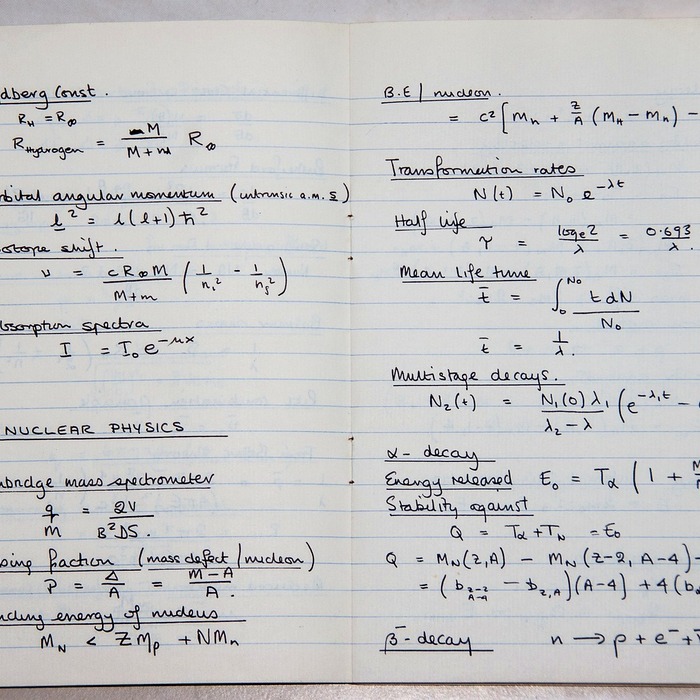 dberg Const.
R_H = R_∞
R_Hydrogen = M / (M + m) R_∞
rbital angular momentum (intrinsic a.m. s)
l² = l(l+1)ħ²
otope shift.
ν = cR_∞M / (M+m) (1/n_i² - 1/n_f²)
bsorption spectra
I = I₀e^{-μx}
NUCLEAR PHYSICS
mbridge mass spectrometer
q/m = 2V / B²DS.
king fraction (mass defect/nucleon)
P = Δ/A = (M-A)/A.
nding energy of nucleus
M_N < ZM_p + NM_n
B.E / nucleon.
= c² [ M_n + Z/A (M_H - m_n) -
Transformation rates
N(t) = N₀ e^{-λt}
Half life
τ = log_e 2 / λ = 0.693 / λ.
Mean life time
t̄ = ∫₀^{N₀} t dN / N₀
t̄ = 1/λ.
Multistage decays.
N₂(t) = N₁(0) λ₁ / (λ₂ - λ) (e^{-λ₁t} -
α - decay
Energy released E₀ = T_α ( 1 +
Stability against
Q = T_α + T_N = E₀
Q = M_N(Z,A) - M_N(Z-2, A-4) -
= (b_{Z-2, A-4} - b_{Z,A})(A-4) + 4(b
β⁻ - decay n → p + e⁻ +